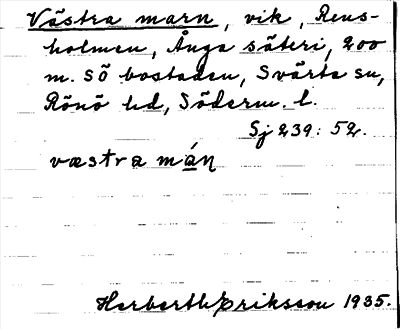 Västra marn, vik, Rens-
holmen, Ånga säteri, 200
m. SÖ bostaden, Svärta sn,
Rönö hd, Söderm. l.
Sj 239: 52.
væstra mán
Herberth Eriksson 1935.